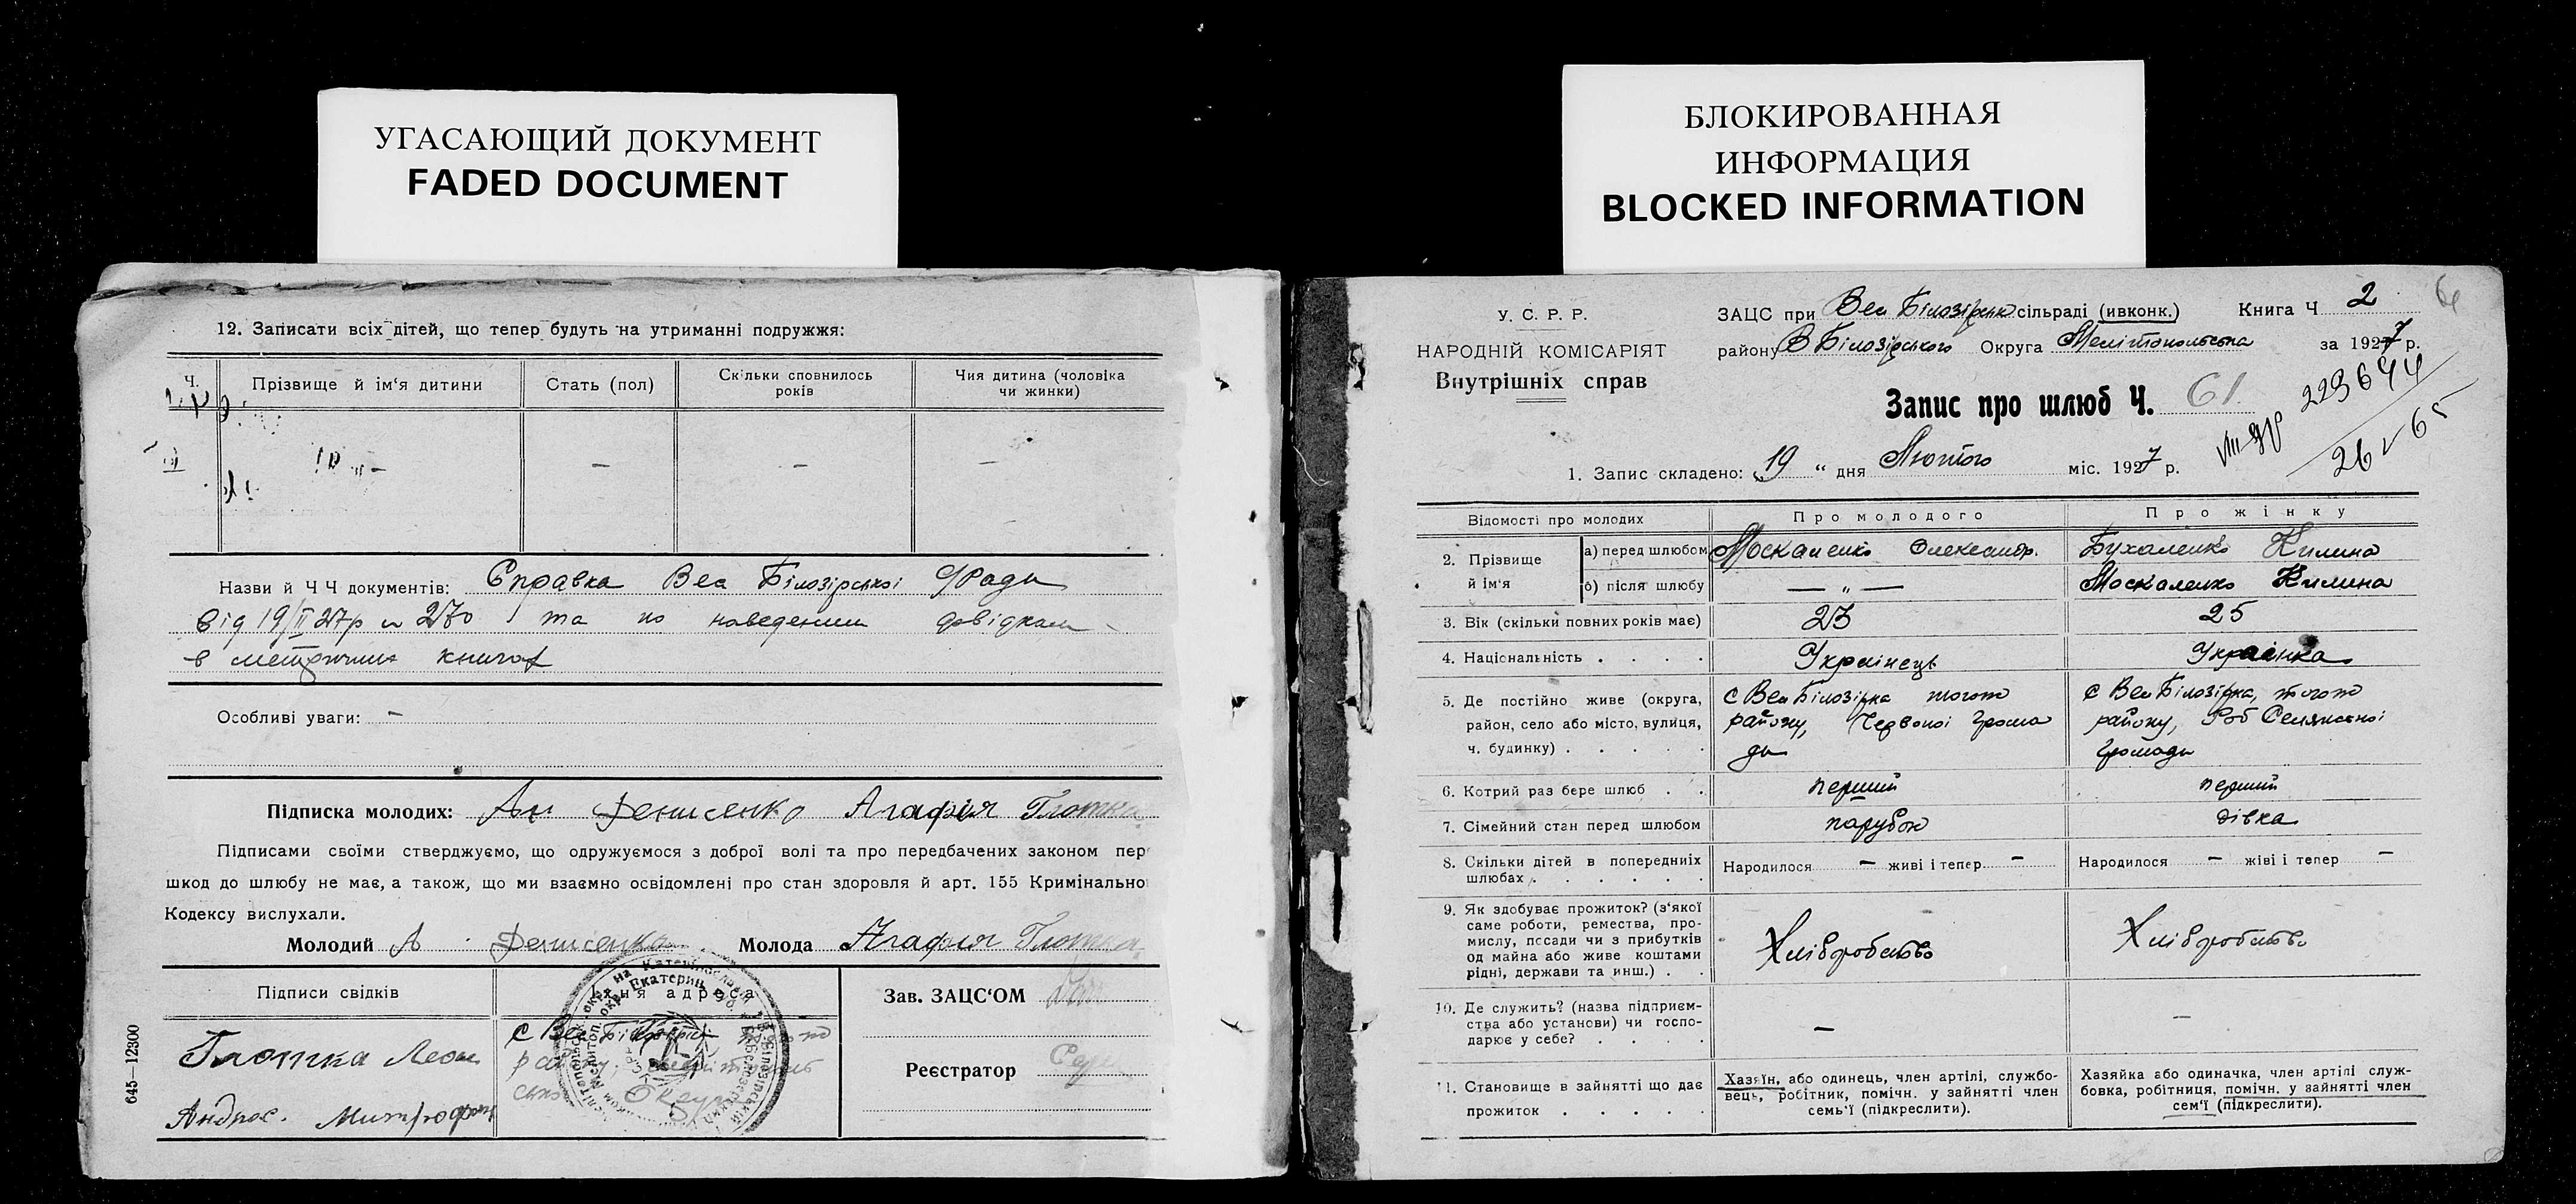 УГАСАЮЩИЙ ДОКУМЕНТ
FADED DOCUMENT
12. Записати всіх дітей, що тепер будуть на утриманні подружжя:
Ч. Прізвище й ім'я дитини Стать (пол) Скільки сповнилось років Чия дитина (чоловіка чи жинки)
— — —
Назви й Ч Ч документів: Справка Вел Білозірської С/Ради
від 19/II 27р № 270 та по наведеним довідкам
в метричних книгах
Особливі уваги: —
Підписка молодих: Ан Денисенко Агафія Глотка
Підписами своїми стверджуємо, що одружуємося з доброї волі та про передбачених законом пер
шкод до шлюбу не має, а також, що ми взаємно освідомлені про стан здоровля й арт. 155 Кримінально
Кодексу вислухали.
Молодий А Денисенко Молода Агафия Глотка
Підписи свідків їхня адреса Зав. ЗАЦС'ОМ
Глотка Леон с Вел Білозірка того
району
Реєстратор
Андрос. Митрофан
645—12300
БЛОКИРОВАННАЯ
ИНФОРМАЦИЯ
BLOCKED INFORMATION
У. С. Р. Р.
НАРОДНІЙ КОМІСАРІЯТ
Внутрішніх справ
ЗАЦС при Вел Білозірськ сільраді (ивконк.) Книга Ч 2
району В Білозірського Округа Мелітопольська за 1927 р.
Запис про шлюб Ч. 61
223644
26 V 65
1. Запис складено: „19 “ дня Лютого міс. 1927 р.
Відомості про молодих Про молодого Про жінку
2. Прізвище й ім'я а) перед шлюбом Москаленко Олександр. Бухаленко Килина
б) після шлюбу — „ — Москаленко Килина
3. Вік (скільки повних років має) 23 25
4. Національність . . . . Українець Українка
5. Де постійно живе (округа, с Вел Білозірка того с Вел Білозірка, того
район, село або місто, вулиця, району, Червоної Грома району, Роб Селянської
ч. будинку) . . . . . ди Громади
6. Котрий раз бере шлюб . . перший перший
7. Сімейний стан перед шлюбом парубок дівка
8. Скільки дітей в попередниіх шлюбах . . . . . . Народилося — живі і тепер — Народилося — жіві і тепер —
9. Як здобуває прожиток? (з'якої
саме роботи, ремества, про-
мислу, посади чи з прибутків
од майна або живе коштами
рідні, держави та инш.) . . Хліборобство Хліборобство
10. Де служить? (назва підприєм-
ства або установи) чи госпо-
дарює у себе? . . . . — —
11. Становище в зайнятті що дає
прожиток . . . . .
Хазяїн, або одинець, член артілі, службо-
вець, робітник, помічн. у зайнятті член
семь'ї (підкреслити).
Хазяйка або одиначка, член артілі служ-
бовка, робітниця, помічн. у зайнятті член
сем'ї (підкреслити).